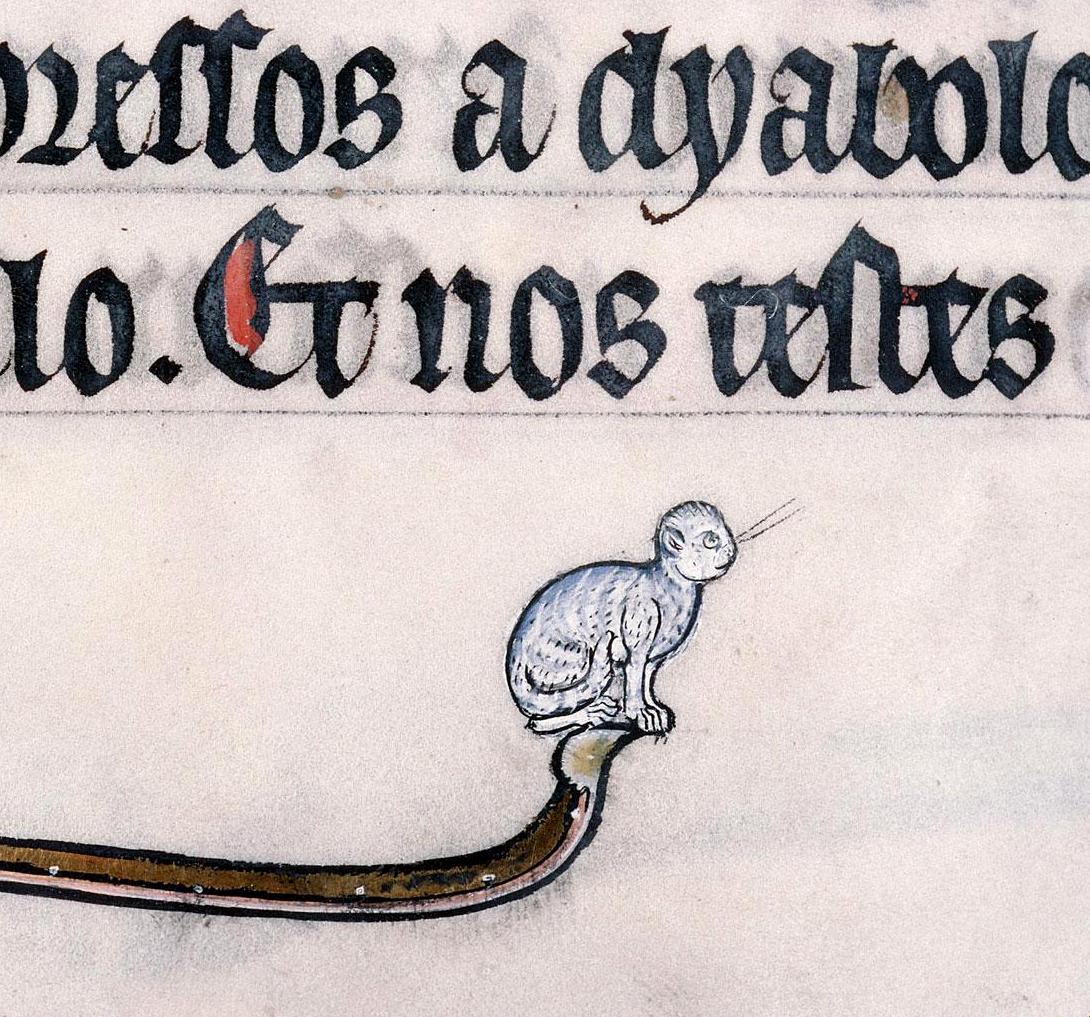 pressos a dyabolo
llo. Et nos testes